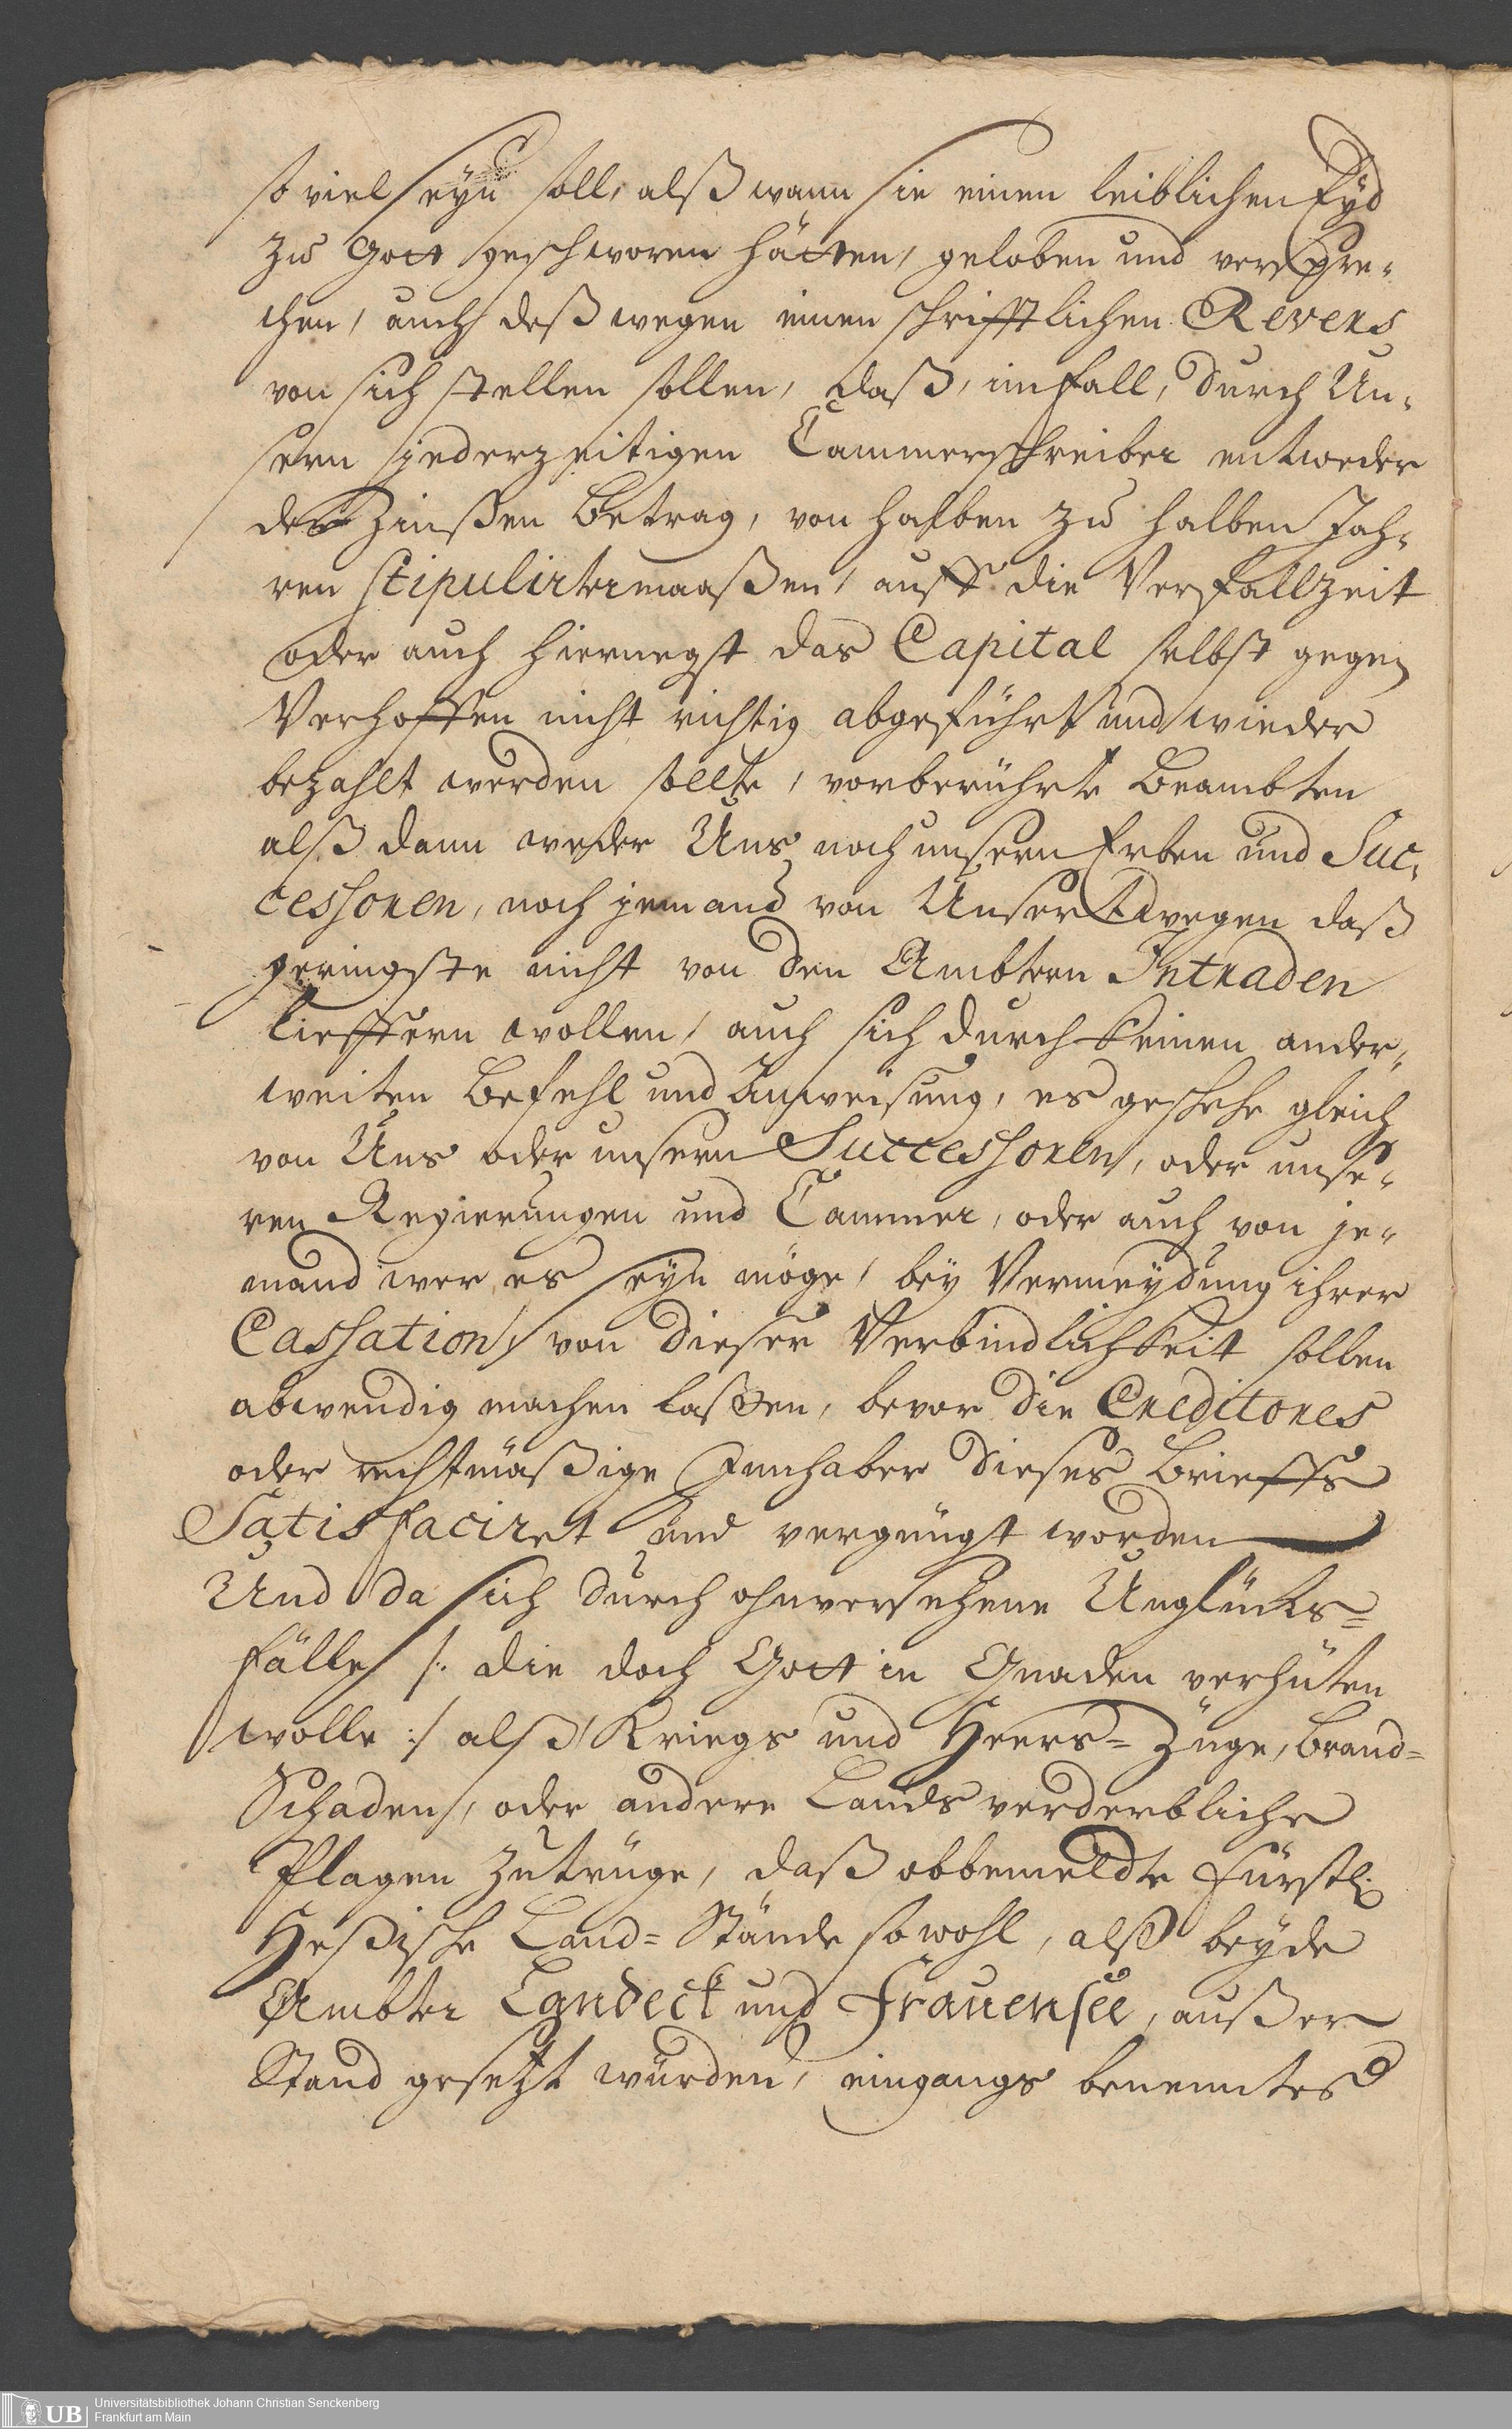 so viel seyn soll, alß wann sie einen leiblichen Eyd
zu Gott geschworen hätten, geloben und verspre-
chen, auch deßwegen einen schrifftlichen Revers
von sich stellen sollen, daß, im Fall, durch Un-
sern jederzeitigen Cammerschreiber entweder
der Zinßen Betrag, von halben zu halben Jah-
ren stipulirtermaaßen, auff die Verfallzeit
oder auch hiernegst das Capital selbst gegen
Verhoffen nicht richtig abgeführt und wieder
bezahlt werden sollte, vorberührte Beambten
alß dann weder Uns noch unsern Erben und Suc-
cessoren, noch jemand von Unsertwegen daß
geringste nicht von den Ambtern Intraden
lieffern wollen, auch sich durch keinen ander-
weiten Befehl und Anweisung, es geschehe gleich
von Uns oder unsern Successoren, oder unse-
ren Regierungen und Cammer, oder auch von je-
mand wer es seyn möge, bey Vermeydung ihrer
Cassation, von dieser Verbindlichkeit sollen
abwendig machen laßen, bevor die Creditores
oder rechtmäßige Innhaber dieses Brieffs
Satisfaciret und vergnügt worden
Und da sich durch ohnversehene Unglücks=
Fälle /: die doch Gott in Gnaden verhüten
wolle :/ alß Kriegs und Heers=Züge, Brand=
Schaden, oder andere Lands verderbliche
Plagen zutrüge, daß obbemeldte Fürstl:
Heßische Land=Stände sowohl, alß beyde
Ambter Landeck und Frauensee, außer
Stand gesetzt würden, eingangs benenntes
Universitätsbibliothek Johann Christian Senckenberg
Frankfurt am Main
UB